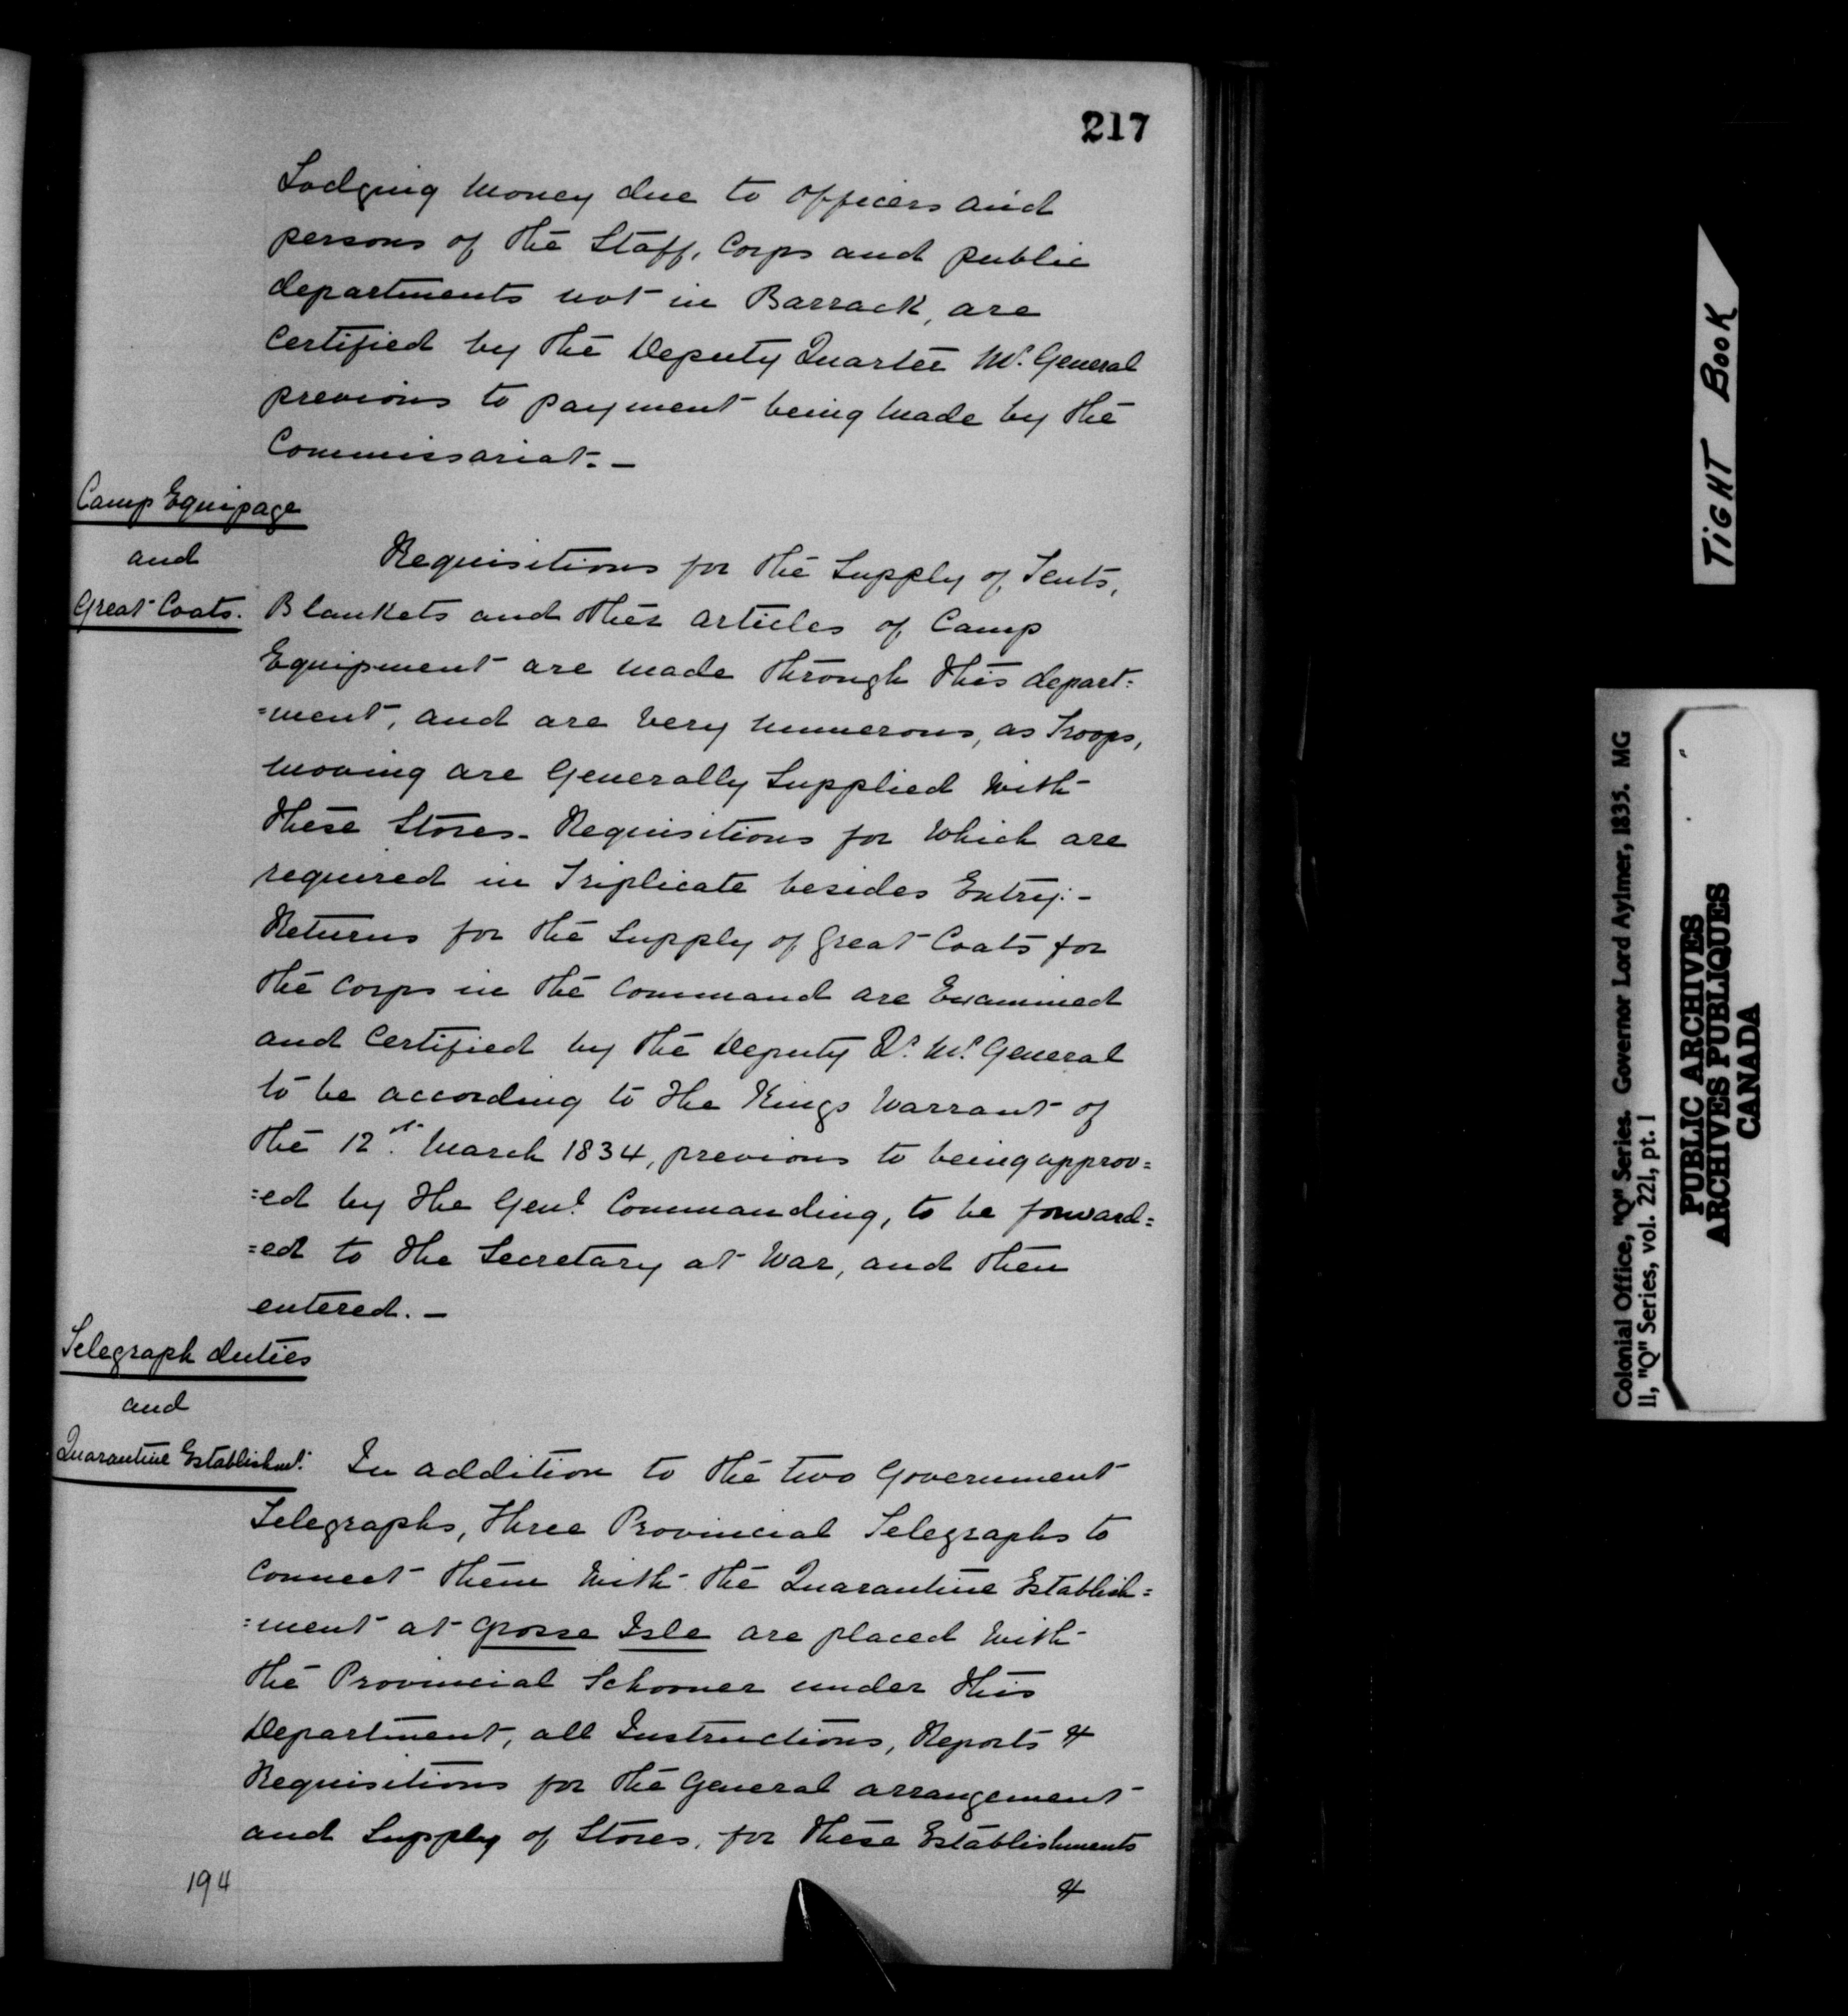 217
Lodging Money due to officers and
persons of the Staff, Corps and public
departments not in Barrack, are
Certified by the Deputy Quarter Mr. General
previous to payment being made by the
Commissariat. —
Camp Equipage
and
Great Coats.
Requisitions for the Supply of Tents,
Blankets and other articles of Camp
Equipment are made through this depart:
=ment, and are very numerous, as Troops,
moving are Generally Supplied with
these Stores. Requisitions for which are
required in Triplicate besides Entry. -
Returns for the Supply of Great Coats for
the Corps in the Command are Examined
and Certified by the Deputy Qr. Mr. General
to be according to the Kings Warrant of
the 12th March 1834, previous to being approv=
=ed by the Genl. Commanding, to be forward=
=ed to the Secretary at War, and then
entered. —
Telegraph duties
and
Quarantine Establishmt.
In addition to the two Government
Telegraphs, Three Provincial Telegraphs to
Connect them with the Quarantine Establish=
=ment at Grosse Isle are placed with
the Provincial Schooner under this
Department, all Instructions, Reports &
Requisitions for the General arrangement
and Supply of Stores, for these Establishments
194
&
TIGHT BOOK
Colonial Office, "Q" Series. Governor Lord Aylmer, 1835. MG
11, "Q" Series, vol. 221, pt. 1
PUBLIC ARCHIVES
ARCHIVES PUBLIQUES
CANADA